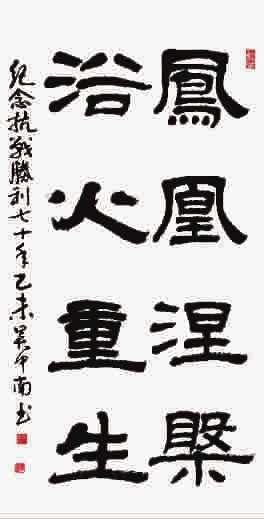 鳳凰涅槃
浴火重生
紀念抗戰勝利七十年乙未吴中南书